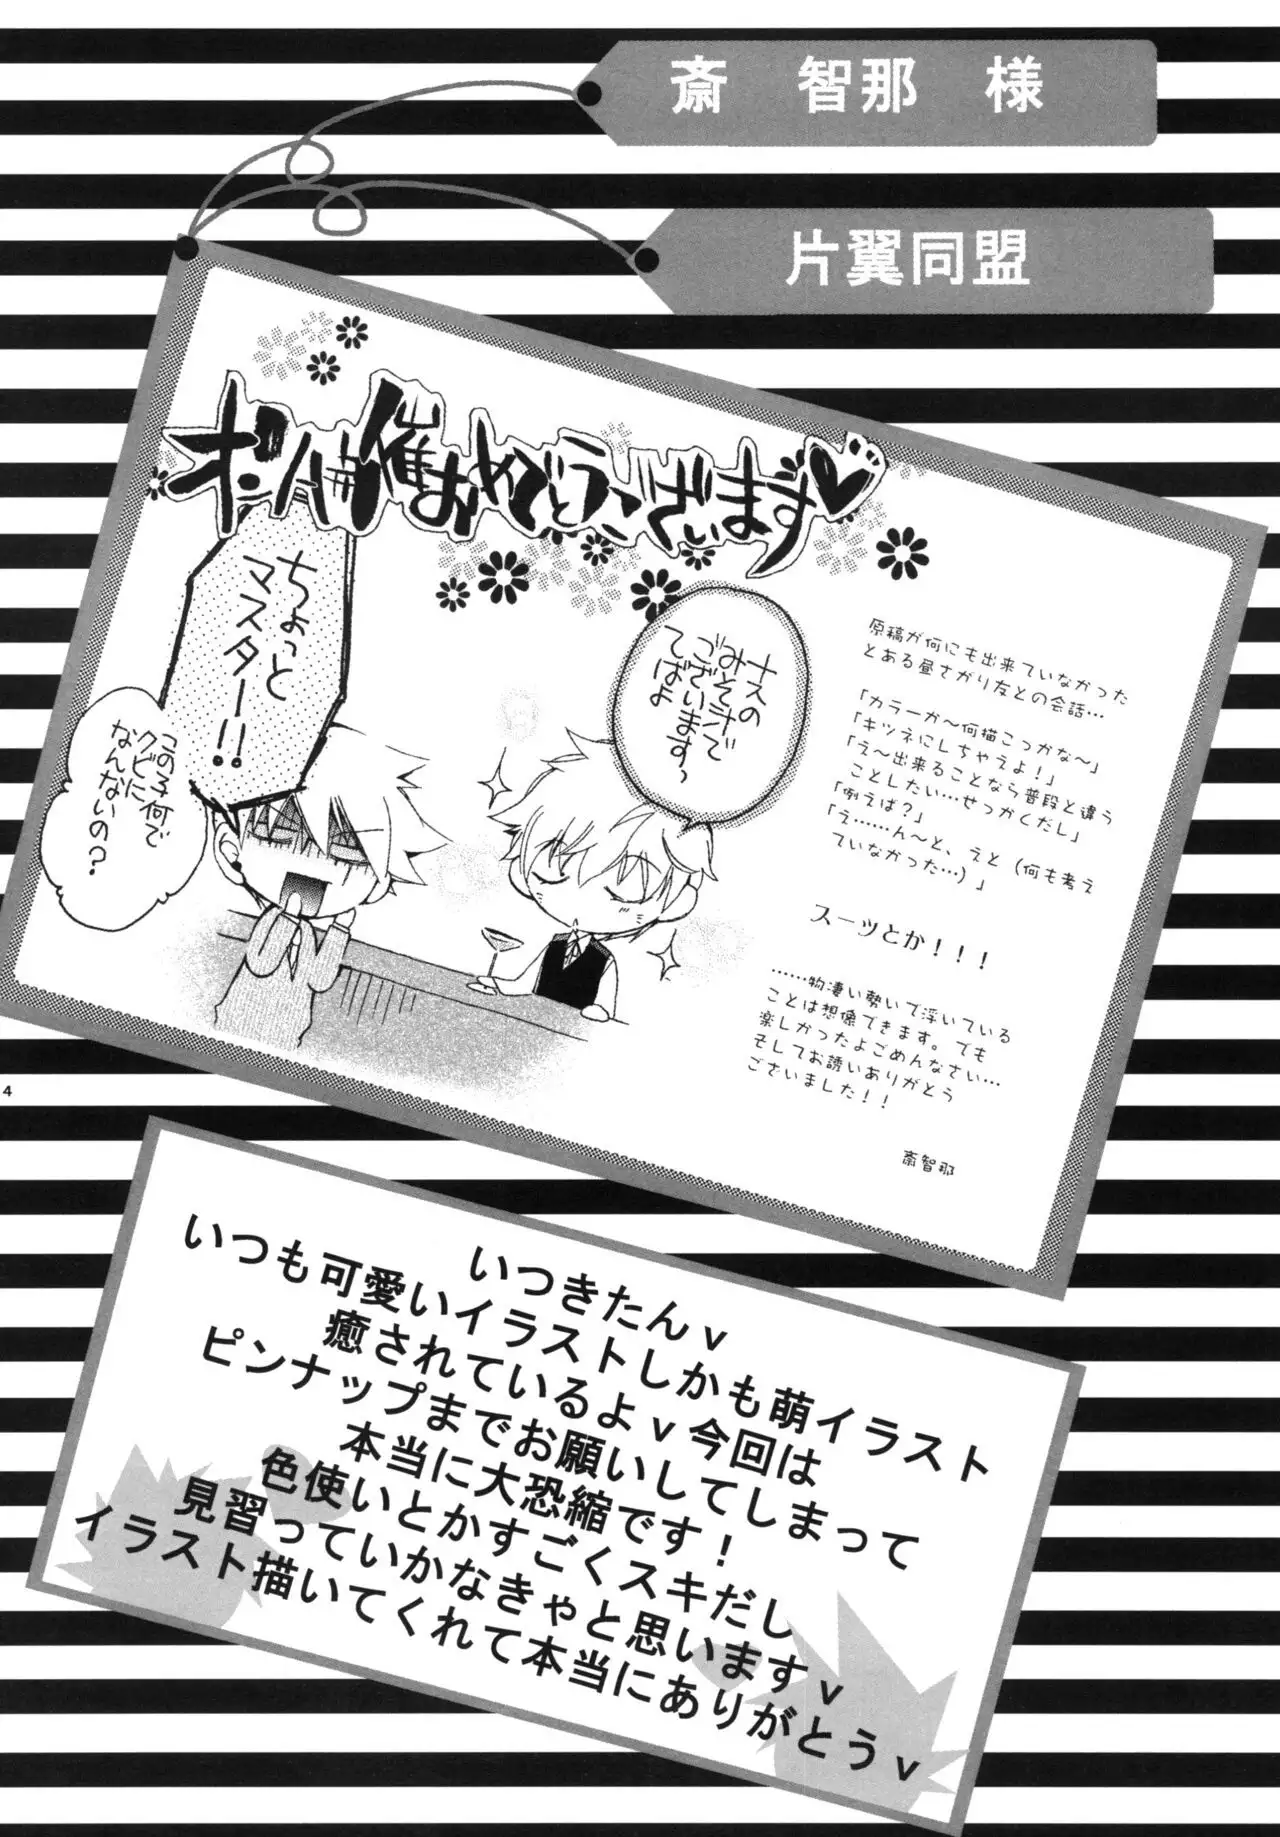 斎 智那 様
片翼同盟
オンリー開催おめでとうございます♥
ナスの
みそ汁で
ございます
てばよ
ちょっと
マスター!!
この子何で
クビに
なんないの?
原稿が何にも出来ていなかった
とある昼さがり友との会話…
「カラーか～何描こっかな～」
「キツネにしちゃえよ！」
「え～出来ることなら普段と違う
ことしたい…せっかくだし」
「例えば？」
「え……ん～と、えと（何も考え
ていなかった…）」
スーツとか！！！
……物凄い勢いで浮いている
ことは想像できます。でも
楽しかったよごめんなさい…
そしてお誘いありがとう
ございました！！
斎智那
4
いつきたんｖ
いつも可愛いイラストしかも萌イラスト
癒されているよｖ今回は
ピンナップまでお願いしてしまって
本当に大恐縮です！
色使いとかすごくスキだし
見習っていかなきゃと思いますｖ
イラスト描いてくれて本当にありがとうｖ